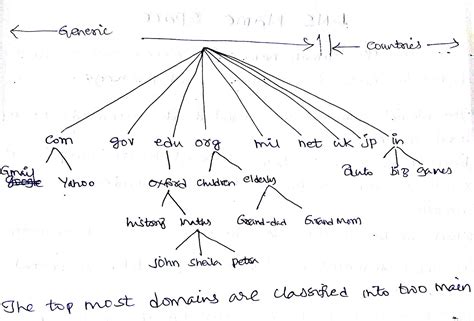 Generic Countries
com gov edu org mil net uk jp in
Gmail Yahoo Oxford children elderly auto games
google
history maths Grand-dad Grand Mom
John Sheila petra
The top most domains are classified into two main